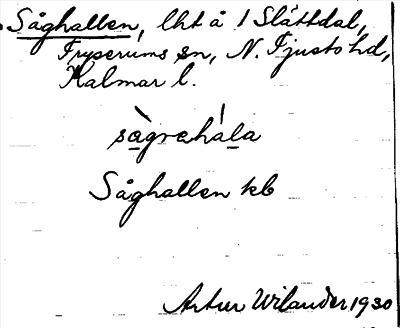 Såghallen, lht å 1 Slättdal,
Fryserums sn, N. Tjusto hd,
Kalmar l.
sàgrahála
Såghallen kb
Artur Wilander 1930